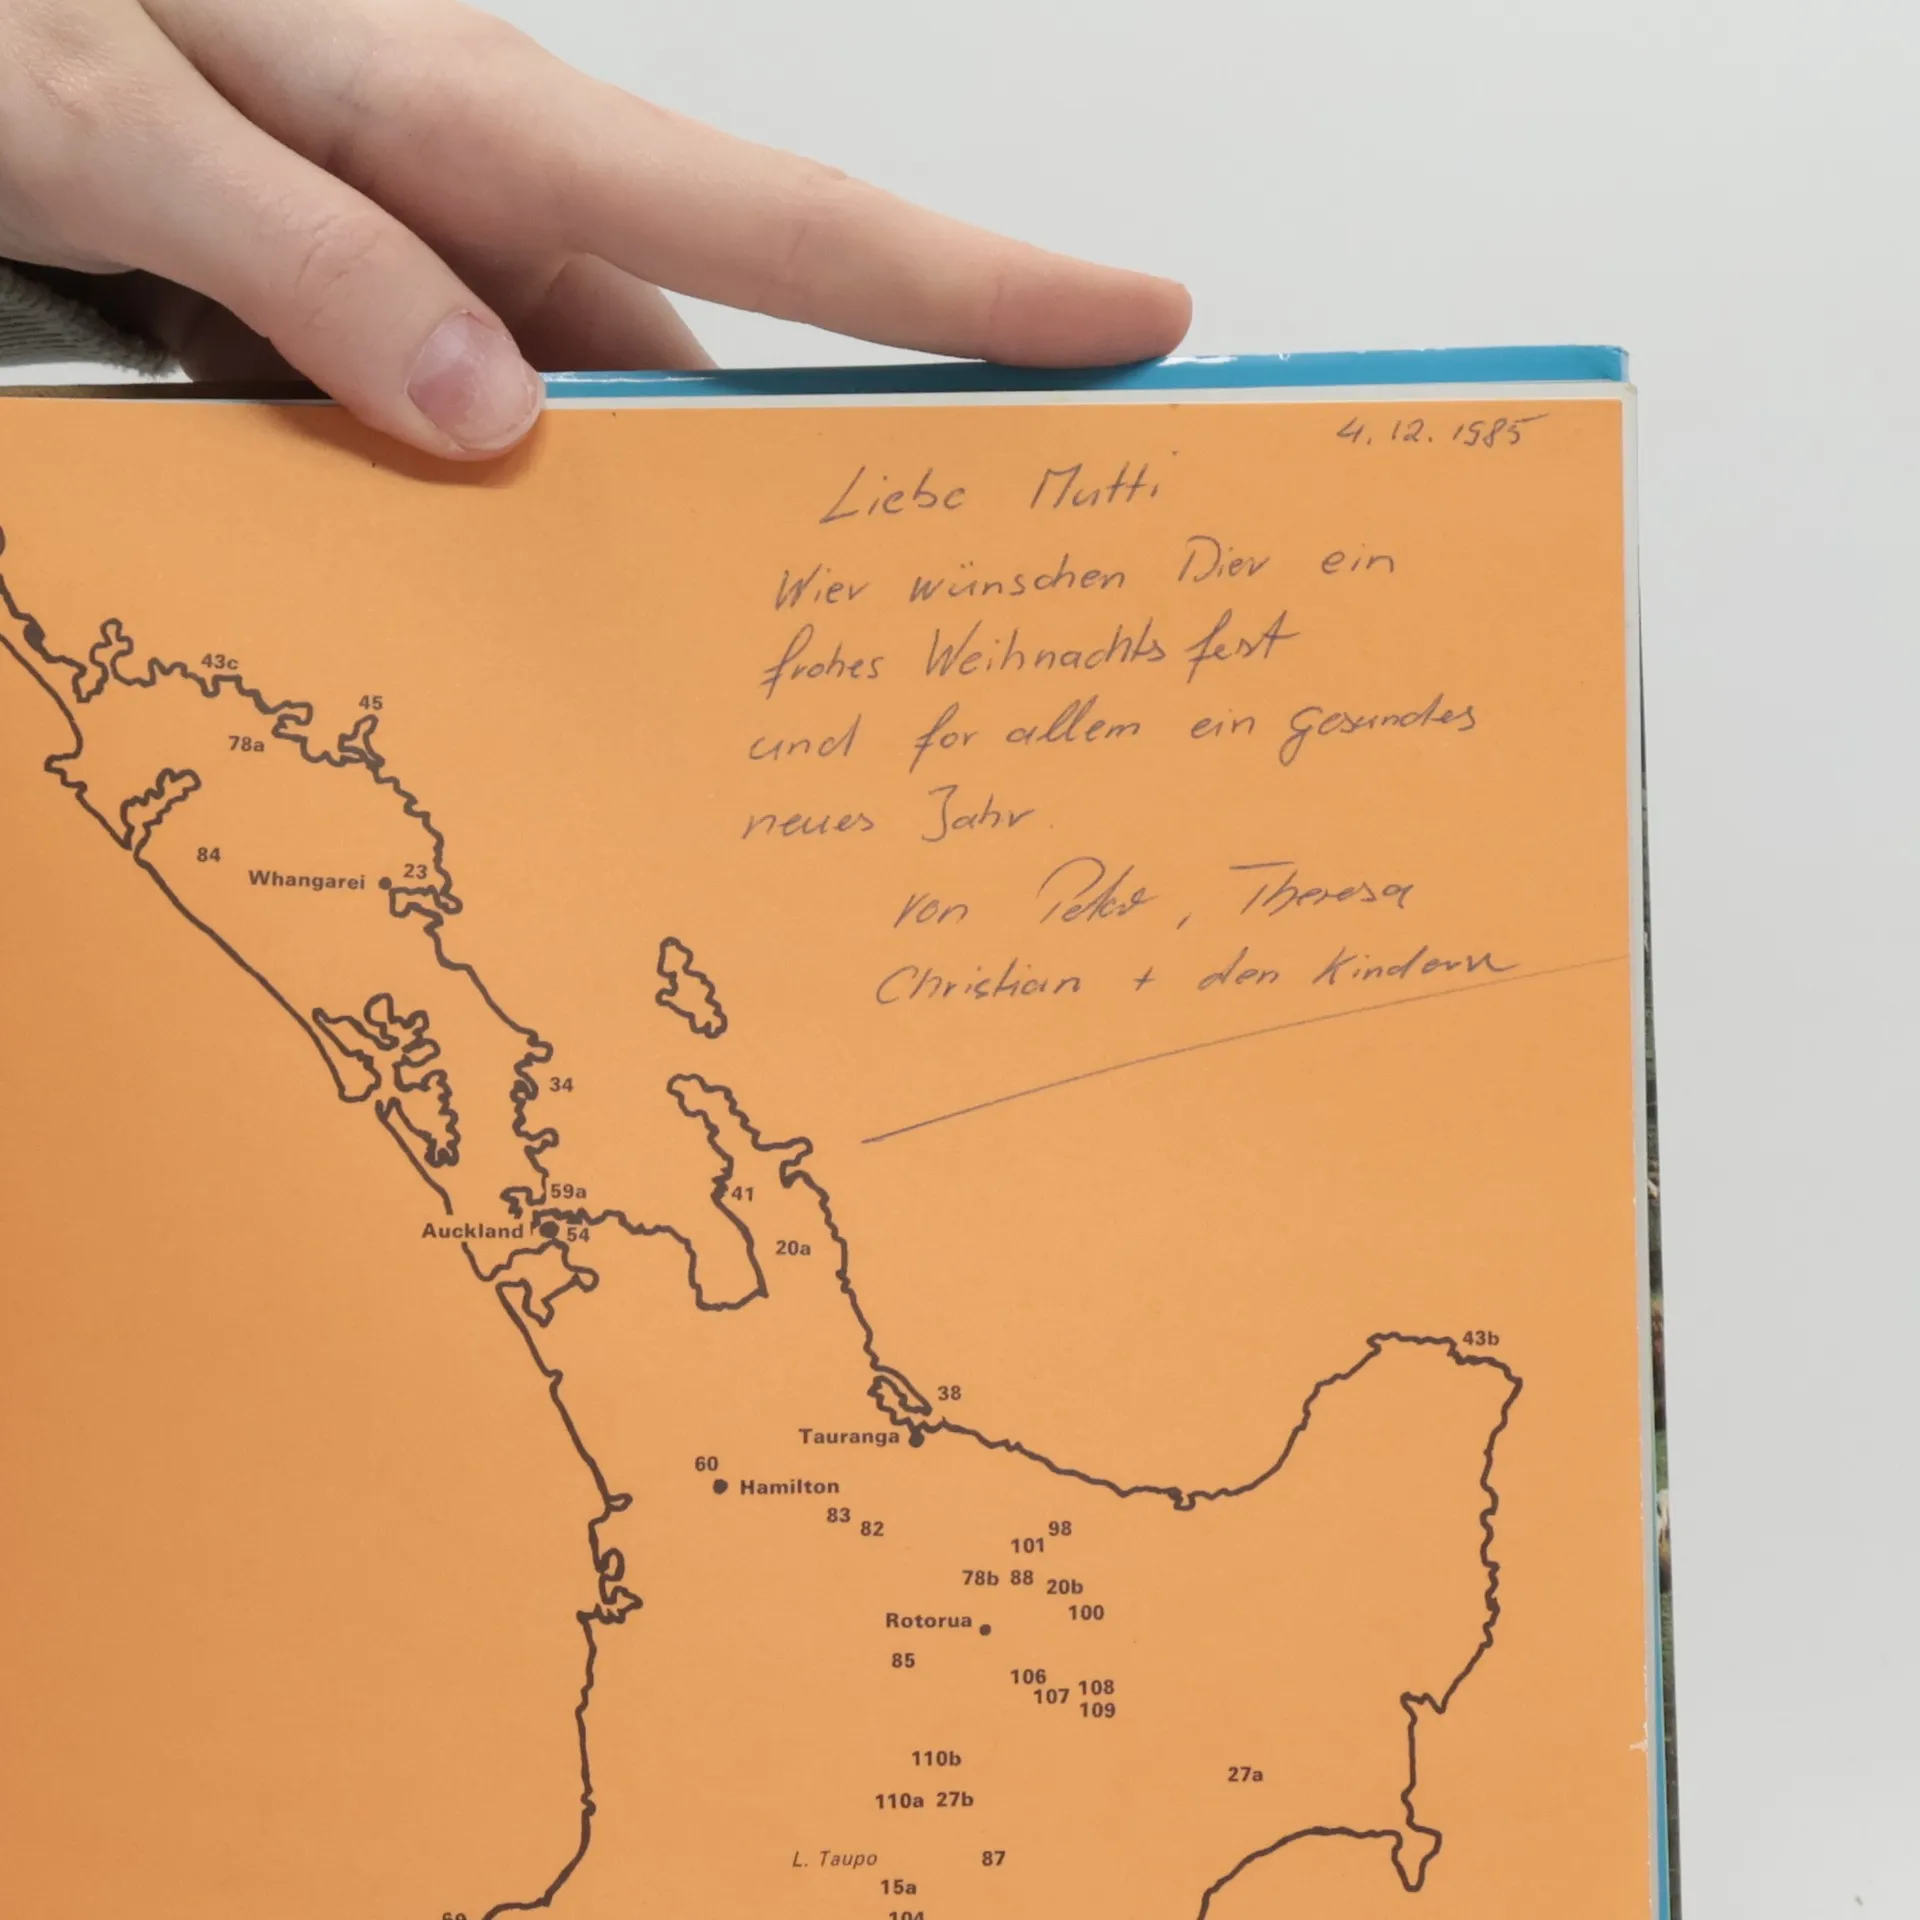 4. 12. 1985
Liebe Mutti
Wier wünschen Dier ein
frohes Weihnachtsfest
und for allem ein gesundes
neues Jahr.
von Peter, Theresa
Christian + den Kindern
43c
45
78a
84
Whangarei
23
34
59a
41
Auckland
54
20a
43b
38
Tauranga
60
Hamilton
83
82
98
101
78b 88 20b
100
Rotorua
85
106
107 108
109
110b
27a
110a 27b
L. Taupo
87
15a
104